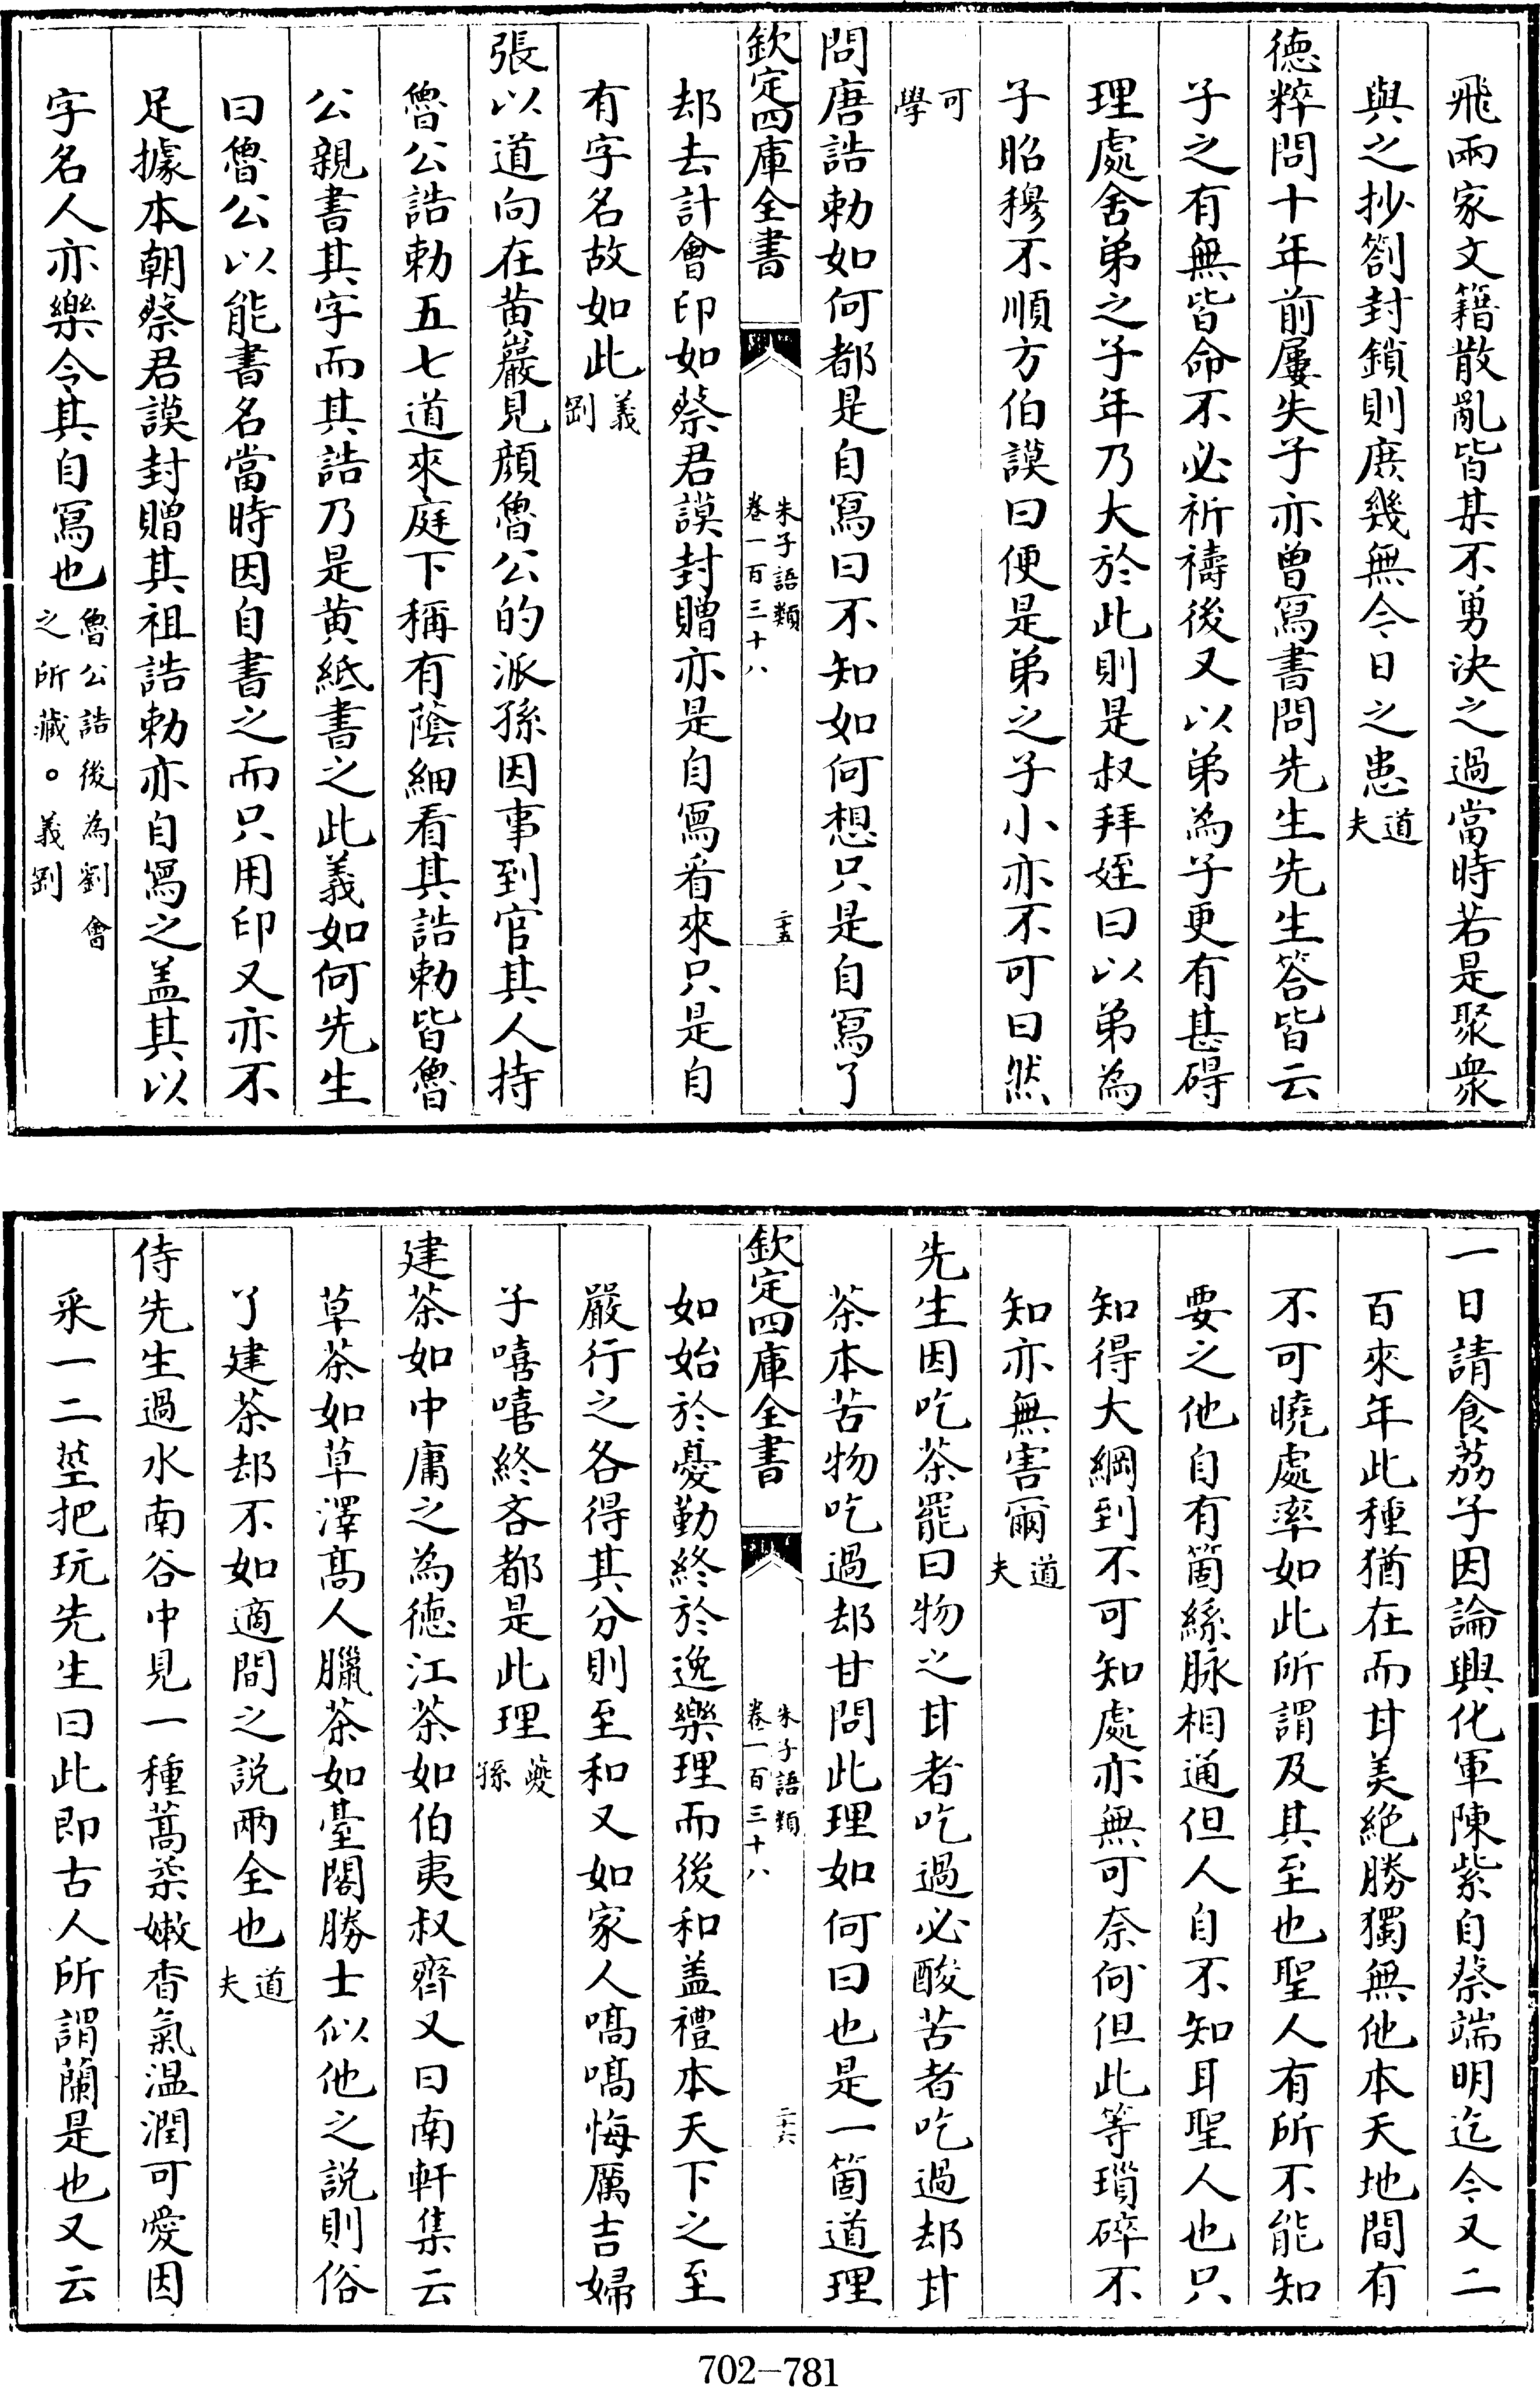 飛兩家文籍散亂皆某不勇決之過當時若是聚衆
與之抄劄封鎖則庶幾無今日之患道夫
德粹問十年前屢失子亦曾寫書問先生先生答皆云
子之有無皆命不必祈禱後又以弟為子更有甚碍
理處舍弟之子年乃大於此則是叔拜姪曰以弟為
子昭穆不順方伯謨曰便是弟之子小亦不可曰然
可學
問唐誥勅如何都是自寫曰不知如何想只是自寫了
欽定四庫全書
朱子語類
卷一百三十八
二十五
却去計會印如蔡君謨封贈亦是自寫看來只是自
有字名故如此義剛
張以道向在黄巖見顔魯公的派孫因事到官其人持
魯公誥勅五七道來庭下稱有蔭細看其誥勅皆魯
公親書其字而其誥乃是黄紙書之此義如何先生
曰魯公以能書名當時因自書之而只用印又亦不
足據本朝蔡君謨封贈其祖誥勅亦自寫之盖其以
字名人亦樂令其自寫也魯公誥後為劉會之所藏。義剛
一日請食荔子因論興化軍陳紫自蔡端明迄今又二
百來年此種猶在而甘美絶勝獨無他本天地間有
不可曉處率如此所謂及其至也聖人有所不能知
要之他自有箇絲脉相通但人自不知耳聖人也只
知得大綱到不可知處亦無可奈何但此等瑣碎不
知亦無害爾道夫
先生因吃茶罷曰物之甘者吃過必酸苦者吃過却甘
茶本苦物吃過却甘問此理如何曰也是一箇道理
欽定四庫全書
朱子語類
卷一百三十八
二十六
如始於憂勤終於逸樂理而後和盖禮本天下之至
嚴行之各得其分則至和又如家人嗃嗃悔厲吉婦
子嘻嘻終吝都是此理夔孫
建茶如中庸之為德江茶如伯夷叔齊又曰南軒集云
草茶如草澤髙人臘茶如臺閣勝士似他之説則俗
了建茶却不如適間之説兩全也道夫
侍先生過水南谷中見一種蒿柔嫩香氣温潤可愛因
采一二莖把玩先生曰此即古人所謂蘭是也又云
702-781